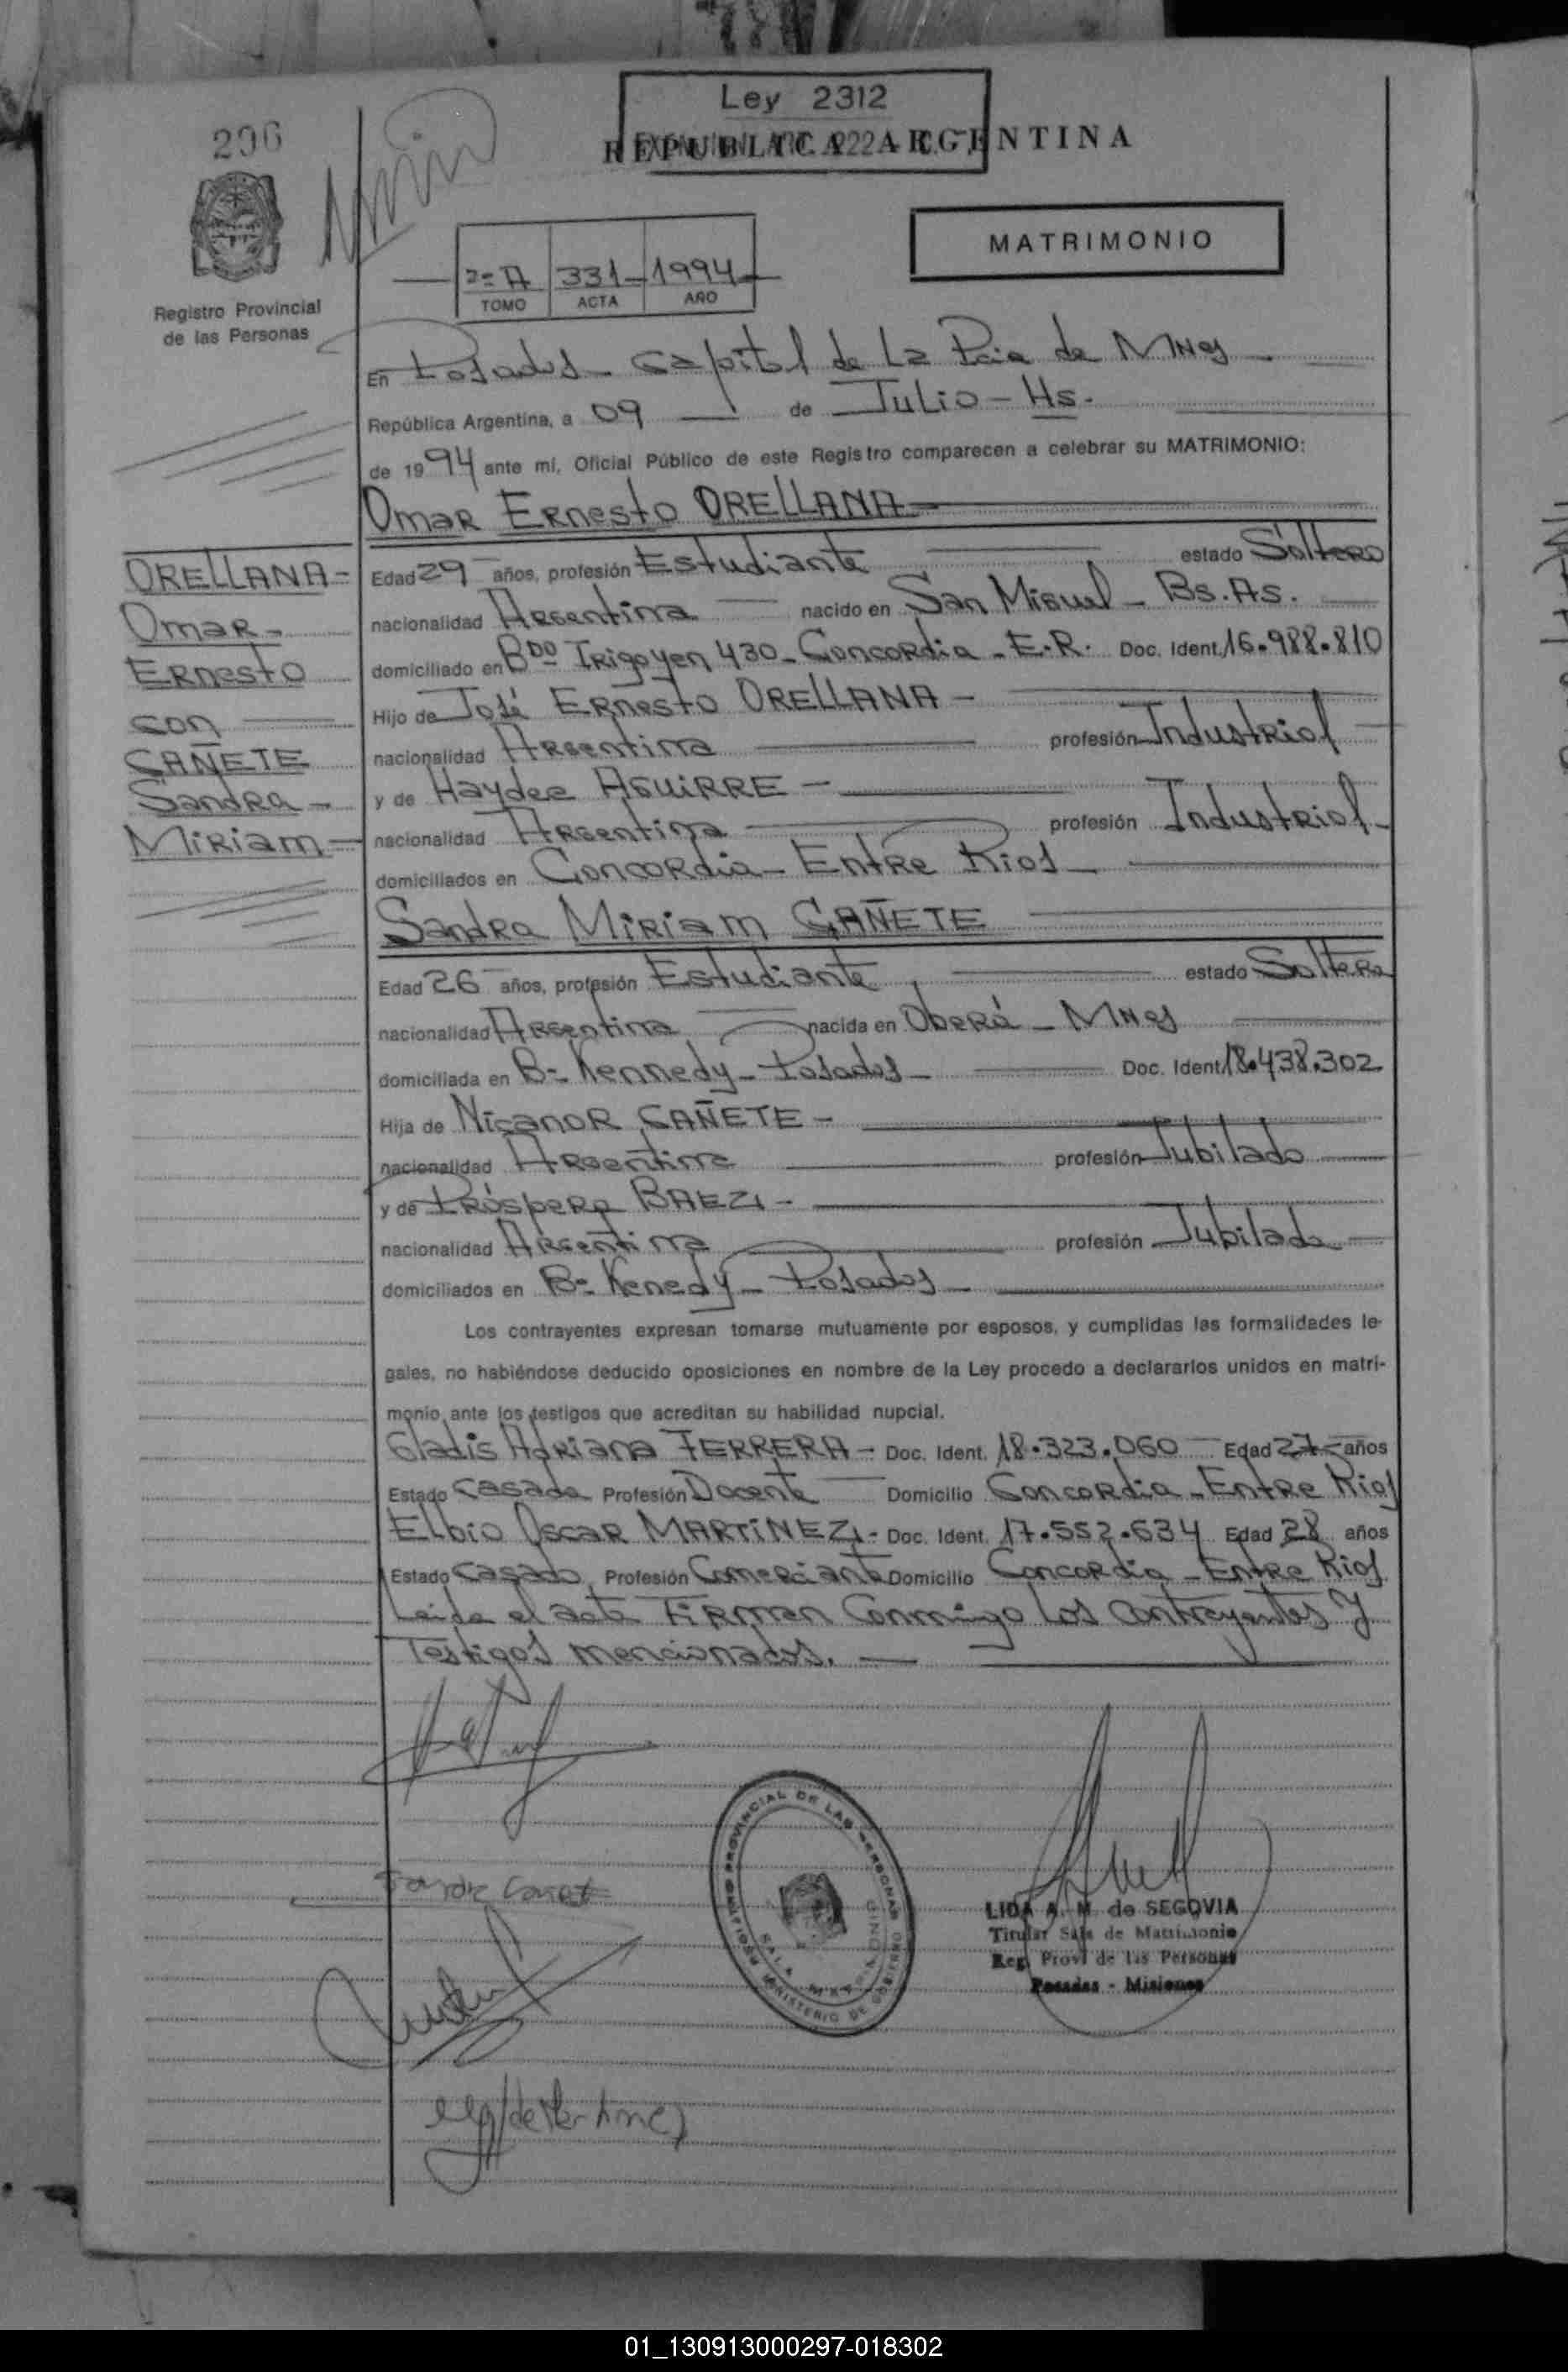 296
Ley 2312
REPUBLICA ARGENTINA
MATRIMONIO
2=A 331 1994
TOMO ACTA AÑO
Registro Provincial
de las Personas
En Posadas - Capital de La Pcia de Mnes
República Argentina, a 09 de Julio - Hs.
de 1994 ante mí, Oficial Público de este Registro comparecen a celebrar su MATRIMONIO:
Omar Ernesto ORELLANA
ORELLANA-
Omar-
Ernesto
con
CAÑETE
Sandra-
Miriam-
Edad 29 años, profesión Estudiante estado Soltero
nacionalidad Argentina nacido en San Miguel - Bs. As.
domiciliado en Bdo Irigoyen 430 - Concordia - E.R. Doc. Ident. 16.988.810
Hijo de José Ernesto ORELLANA -
nacionalidad Argentina profesión Industrial
y de Haydee AGUIRRE -
nacionalidad Argentina profesión Industrial
domiciliados en Concordia - Entre Rios
Sandra Miriam CAÑETE
Edad 26 años, profesión Estudiante estado Soltera
nacionalidad Argentina nacida en Oberá - Mnes
domiciliada en B= Kennedy - Posadas - Doc. Ident. 18.438.302
Hija de Nicanor CAÑETE -
nacionalidad Argentina profesión Jubilado
y de Próspera BAEZ -
nacionalidad Argentina profesión Jubilada
domiciliados en B= Kenedy - Posadas
Los contrayentes expresan tomarse mutuamente por esposos, y cumplidas las formalidades le-
gales, no habiéndose deducido oposiciones en nombre de la Ley procedo a declararlos unidos en matri-
monio ante los testigos que acreditan su habilidad nupcial.
Gladis Adriana FERRERA - Doc. Ident. 18.323.060 Edad 27 años
Estado Casada Profesión Docente Domicilio Concordia - Entre Rios
Elbio Oscar MARTINEZ - Doc. Ident. 17.552.634 Edad 28 años
Estado Casado Profesión Comerciante Domicilio Concordia - Entre Rios
Leida el acta Firman Conmigo Los Contrayentes Y
Testigos mencionados.
REGISTRO PROVINCIAL DE LAS PERSONAS
MINISTERIO DE GOBIERNO
LIDA A. M. de SEGOVIA
Titular Sala de Matrimonio
Reg. Prov. de las Personas
Posadas - Misiones
01_130913000297-018302